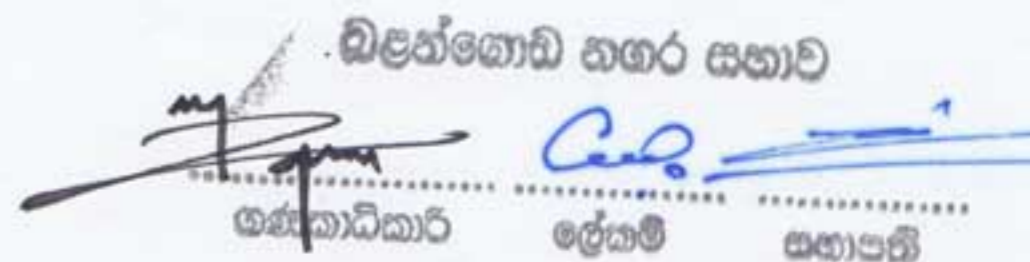 බලන්ගොඩ නගර සභාව
ගණකාධිකාරි ලේකම් සභාපති